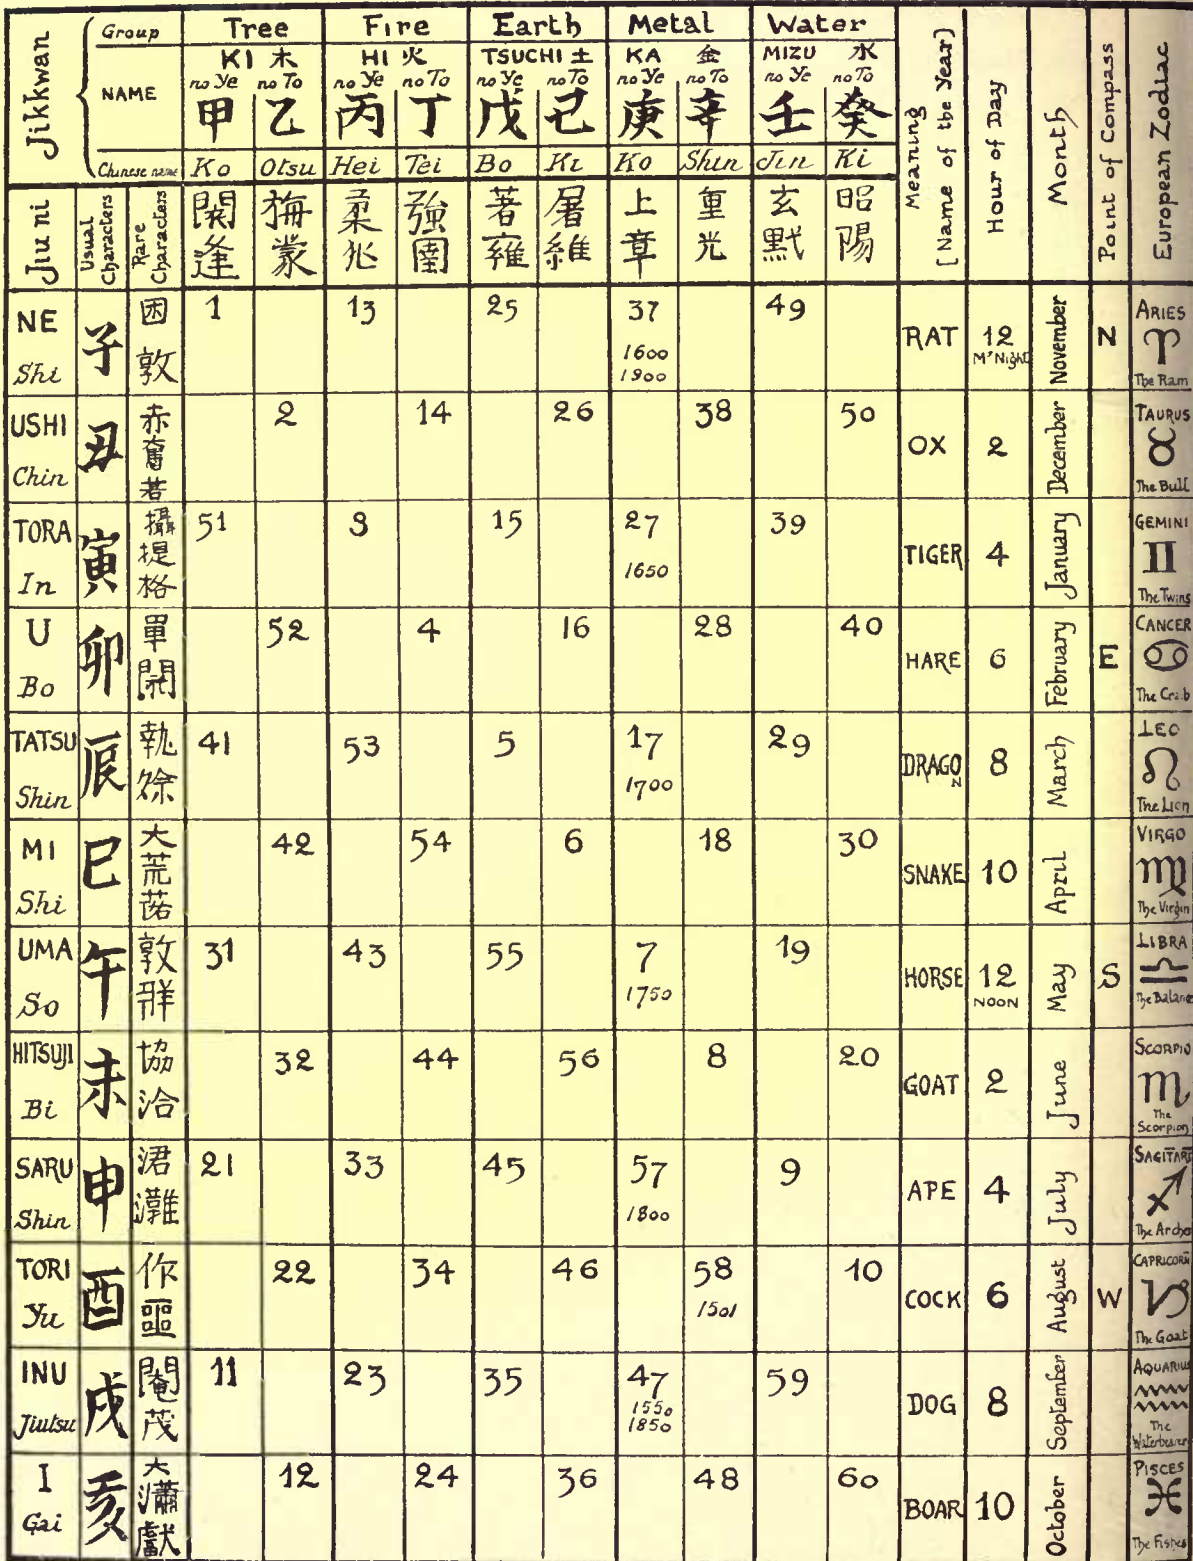 Jikkwan
Group Tree Fire Earth Metal Water
NAME KI 木 HI 火 TSUCHI 土 KA 金 MIZU 水
no Ye no To no Ye no To no Ye no To no Ye no To no Ye no To
甲 乙 丙 丁 戊 己 庚 辛 壬 癸
Chinese name Ko Otsu Hei Tei Bo Ki Ko Shin Jin Ki
Jiu ni Usual Characters Rare Characters
逢 蒙 柔兆 強圉 著雍 屠維 上章 重光 玄黓 昭陽
Meaning [Name of the Year]
Hour of Day
Month
Point of Compass
European Zodiac
NE Shi 子 困敦 1 13 25 37 1600 1900 49 RAT 12 M'Night November N ARIES ♈ The Ram
USHI Chin 丑 赤奮若 2 14 26 38 50 OX 2 December TAURUS ♉ The Bull
TORA In 寅 攝提格 51 3 15 27 1650 39 TIGER 4 January GEMINI ♊ The Twins
U Bo 卯 單 52 4 16 28 40 HARE 6 February E CANCER ♋ The Crab
TATSU Shin 辰 執徐 41 53 5 17 1700 29 DRAGON 8 March LEO ♌ The Lion
MI Shi 巳 大荒落 42 54 6 18 30 SNAKE 10 April VIRGO ♍ The Virgin
UMA So 午 敦牂 31 43 55 7 1750 19 HORSE 12 NOON May S LIBRA ♎ The Balance
HITSUJI Bi 未 協洽 32 44 56 8 20 GOAT 2 June SCORPIO ♏ The Scorpion
SARU Shin 申 涒灘 21 33 45 57 1800 9 APE 4 July SAGITARI ♐ The Archer
TORI Yu 酉 作噩 22 34 46 58 1501 10 COCK 6 August W CAPRICORN ♑ The Goat
INU Jiutsu 戌 閹茂 11 23 35 47 1550 1850 59 DOG 8 September AQUARIUS ♒ The Waterbearer
I Gai 亥 大 獻 12 24 36 48 60 BOAR 10 October PISCES ♓ The Fishes